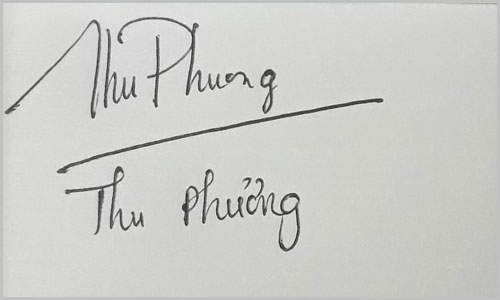 Thu Phuong
Thu Phưởng